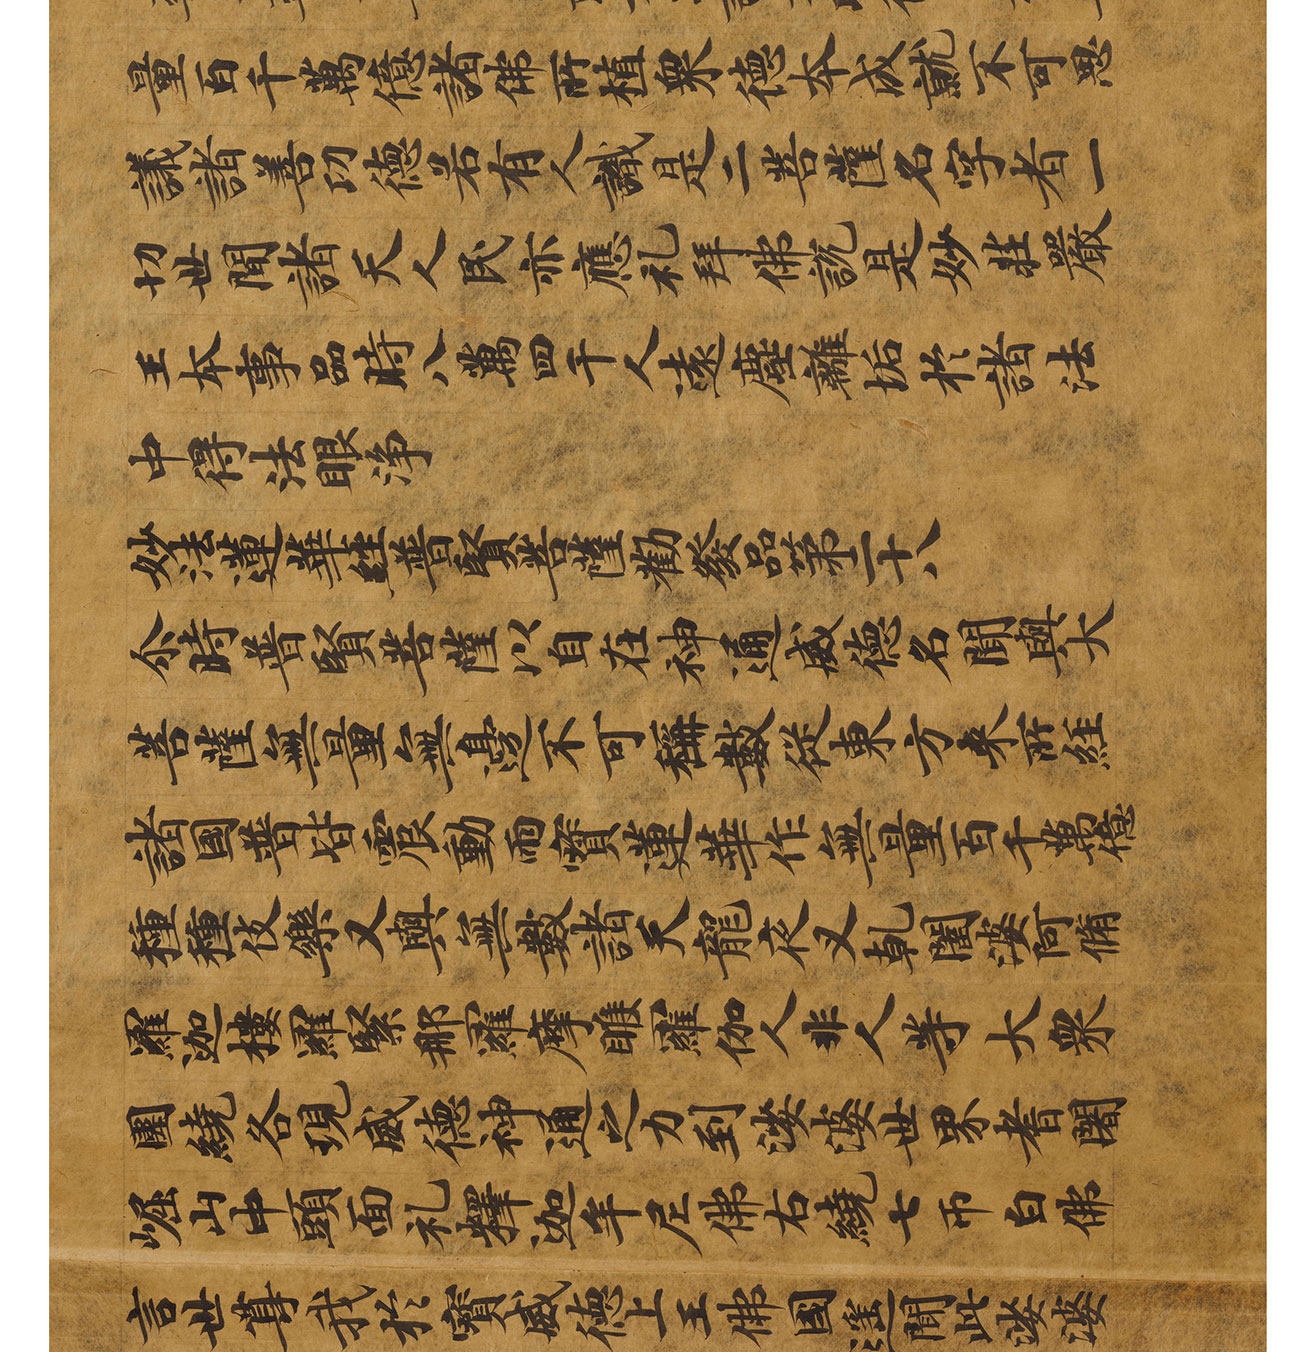 量百千萬億諸佛所植眾德本成就不可思
議諸善功德若有人識是二菩薩名字者一
切世間諸天人民亦應礼拜佛說是妙莊嚴
王本事品時八萬四千人遠塵離垢於諸法
中得法眼淨
妙法蓮華經普賢菩薩勸發品第二十八
尒時普賢菩薩以自在神通威德名聞與大
菩薩無量無邊不可稱數從東方來所經
諸國普皆震動而寶蓮華作無量百千萬億
種種伎樂又與無數諸天龍夜叉乾闥婆阿脩
羅迦樓羅緊那羅摩睺羅伽人非人等大眾
圍繞各現威德神通之力到娑婆世界耆闍
崛山中頭面礼釋迦牟尼佛右繞七帀白佛
言世尊我於寶威德上王佛國遙聞此娑婆